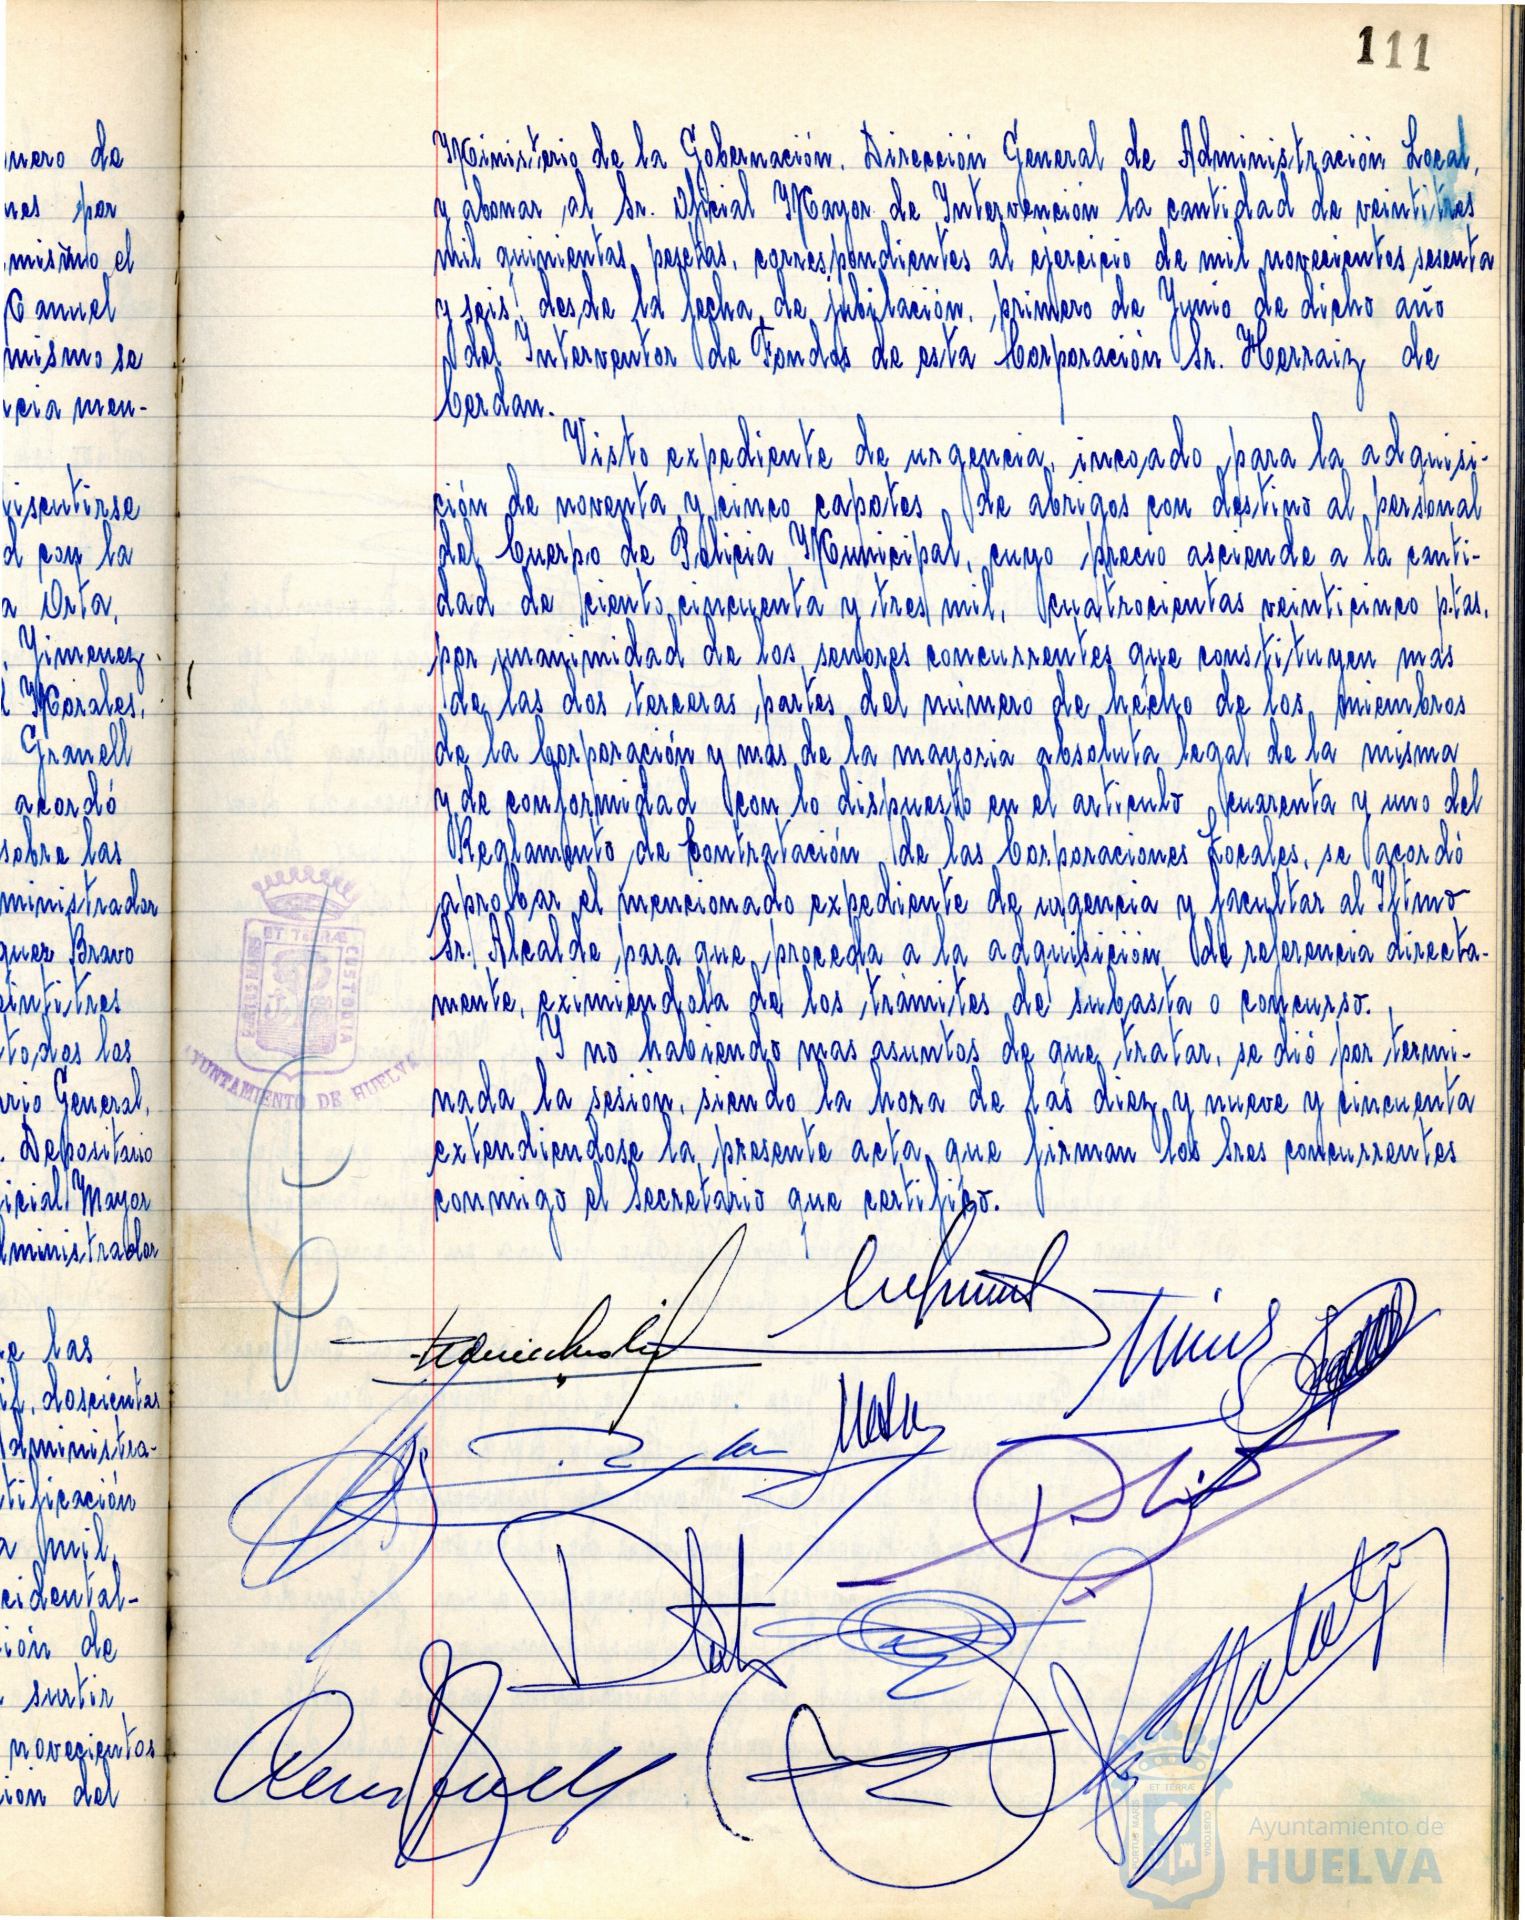 111
nero de
nes por
mismo el
anuel
mismo se
ncia men-
discutirse
d con la
a Orta,
, Gimenez
l Morales,
Granell
acordó
sobre las
ministrador
guez Bravo
eintitres
todos los
ario General,
. Depositario
icial Mayor
dministrador
e las
il, doscientas
administra-
tificación
a mil,
cidental-
ión de
surtir
novecientos
ion del
Ministerio de la Gobernación. Dirección General de Administración Local,
y abonar al Sr. Oficial Mayor de Intervención la cantidad de veintitres
mil quinientas pesetas, correspondientes al ejercicio de mil novecientos sesenta
y seis, desde la fecha de jubilación, primero de Junio de dicho año
del Interventor de Fondos de esta Corporación Sr. Herraiz de
Cerdan.
Visto expediente de urgencia, incoado para la adquisi-
ción de noventa y cinco capotes de abrigos con destino al personal
del Cuerpo de Policia Municipal, cuyo precio asciende a la canti-
dad de ciento cincuenta y tres mil, cuatrocientas veinticinco ptas,
por unanimidad de los señores concurrentes que constituyen mas
de las dos terceras partes del número de hecho de los miembros
de la Corporación y mas de la mayoria absoluta legal de la misma
y de conformidad con lo dispuesto en el articulo cuarenta y uno del
Reglamento de Contratación de las Corporaciones Locales, se acordó
aprobar el mencionado expediente de urgencia y facultar al Iltmo
Sr. Alcalde para que proceda a la adquisición de referencia directa-
mente, eximiendola de los trámites de subasta o concurso.
Y no habiendo mas asuntos de que tratar, se dió por termi-
nada la sesión, siendo la hora de las diez y nueve y cincuenta
extendiendose la presente acta que firman los Sres concurrentes
conmigo el Secretario que certifico.
ET TERRÆ
CUSTODIA
PORTUS MARIS
AYUNTAMIENTO DE HUELVA
ET TERRÆ
PORTUS MARIS
CUSTODIA
Ayuntamiento de
HUELVA